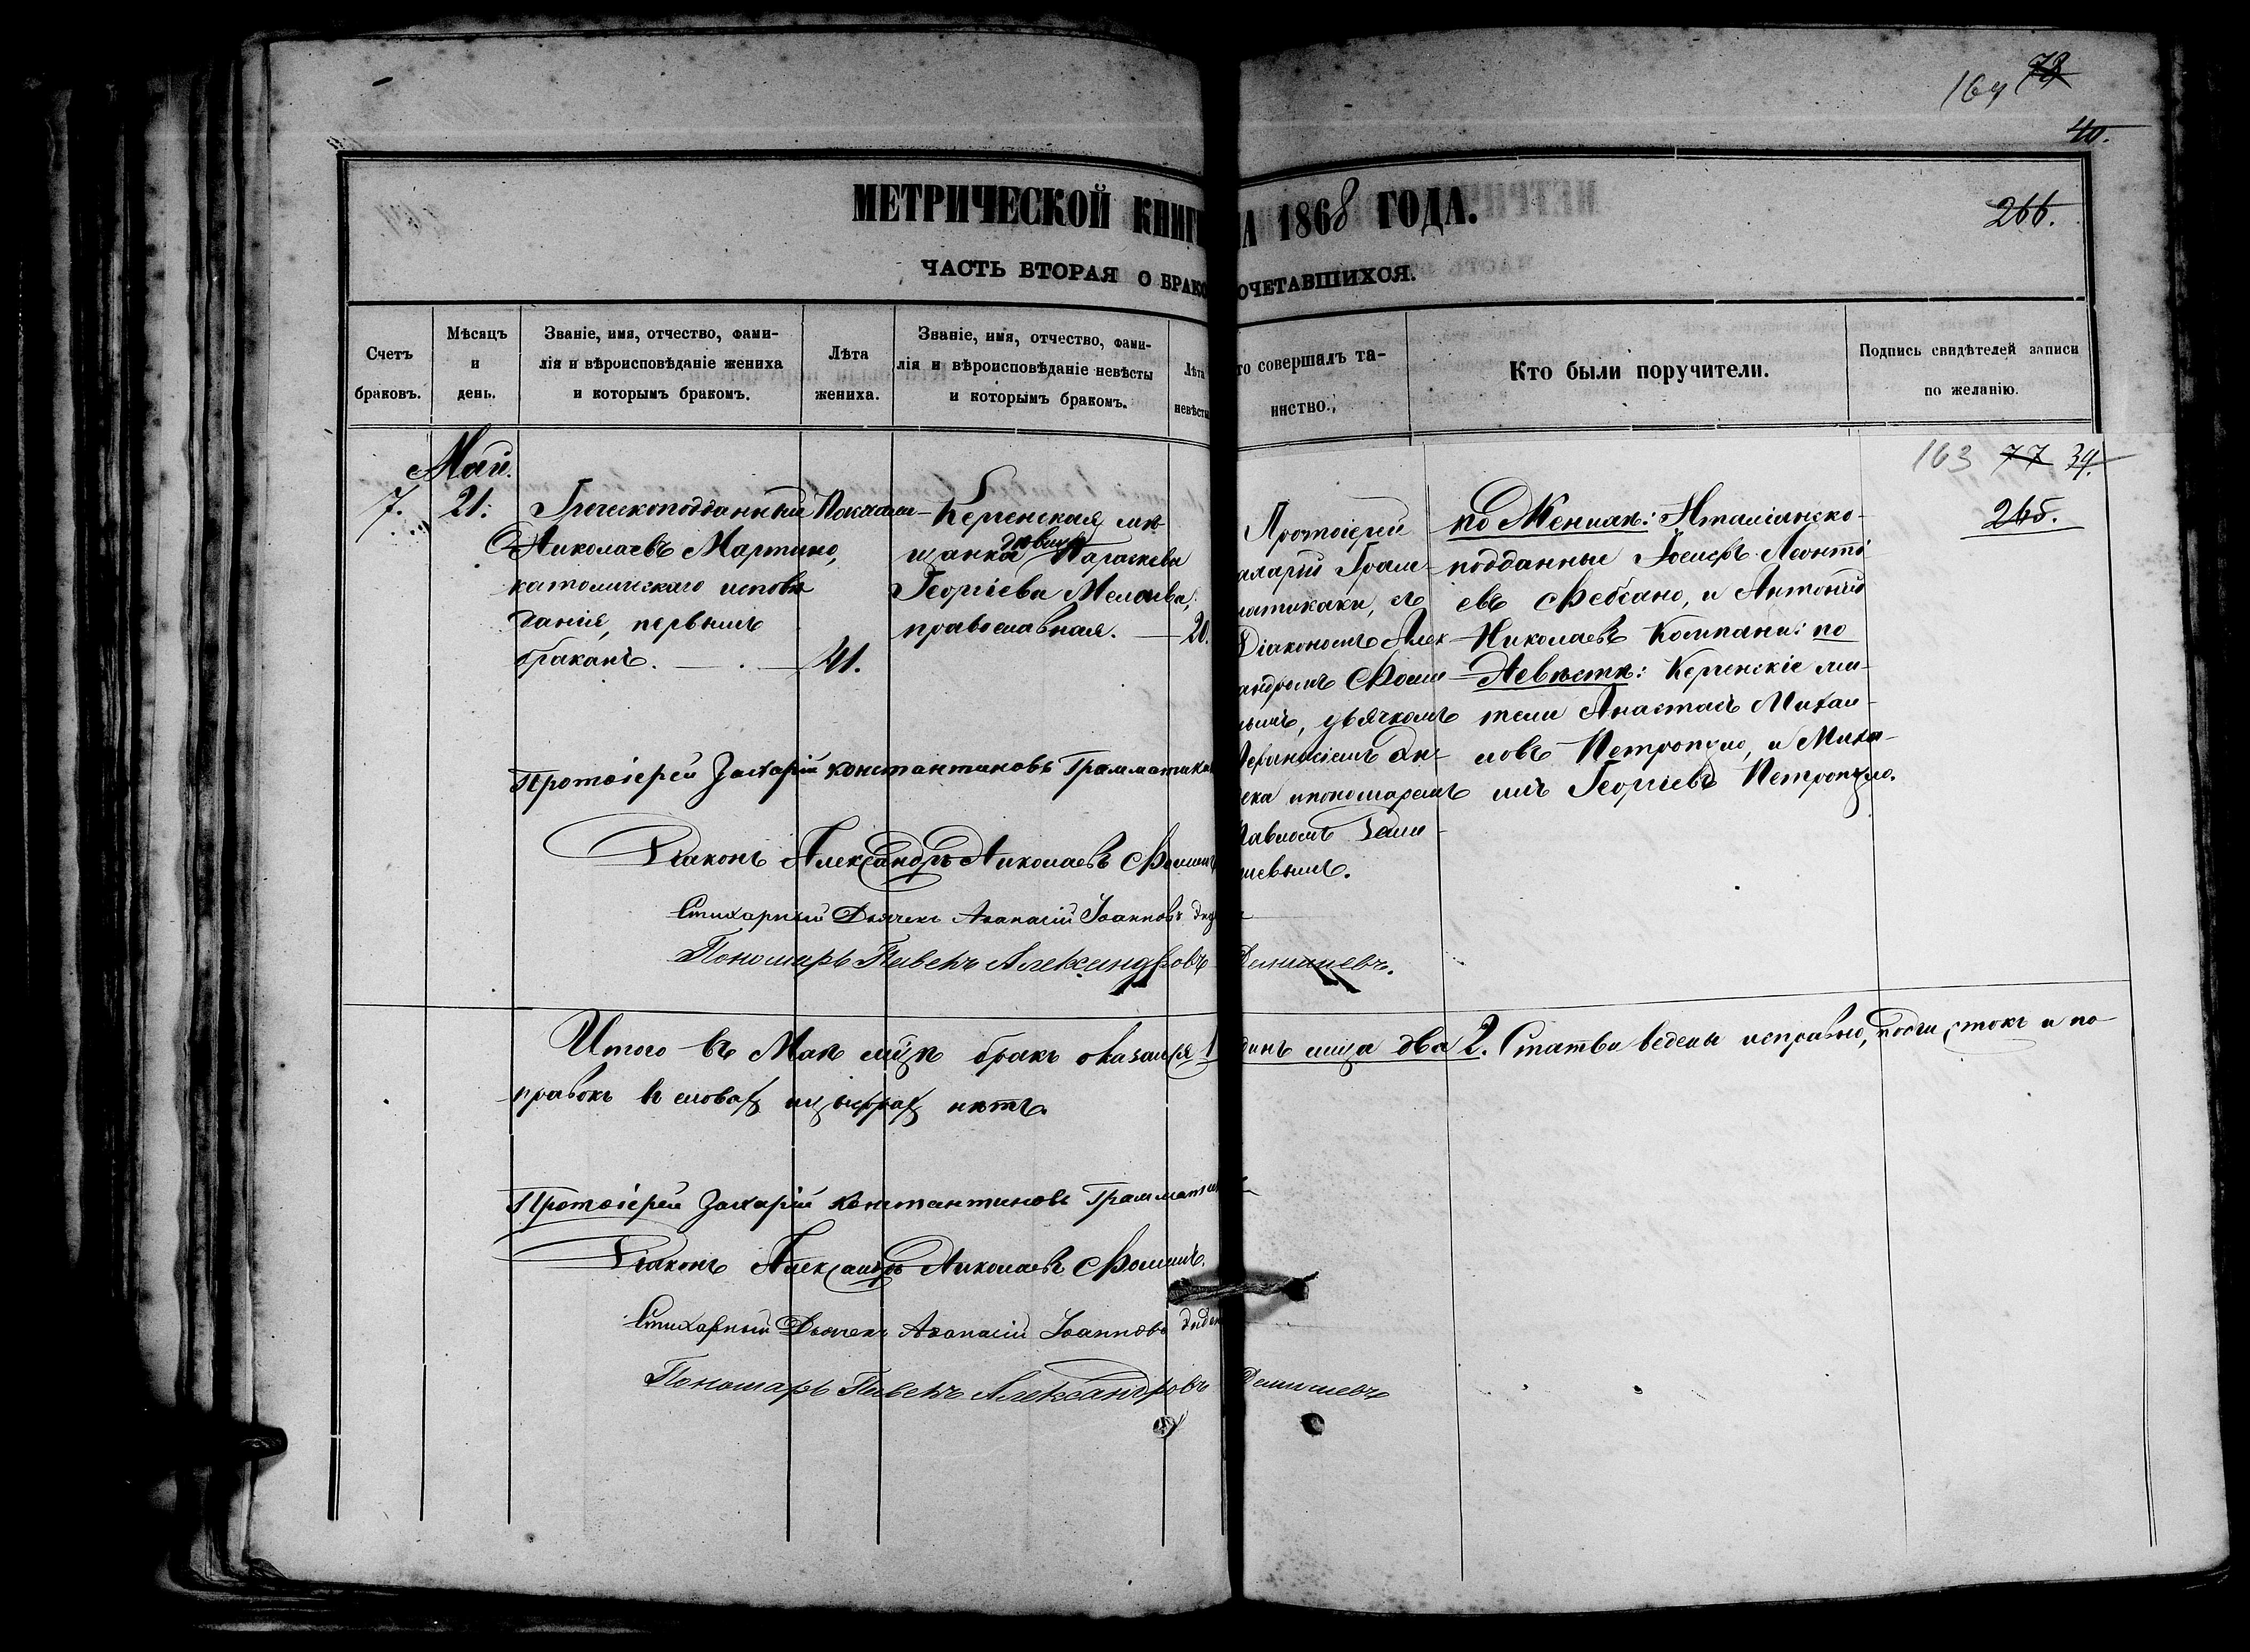 164 73
40.
МЕТРИЧЕСКОЙ КНИГ НА 1868 ГОДА.
266.
ЧАСТЬ ВТОРАЯ О БРАКОСОЧЕТАВШИХСЯ.
Счетъ браковъ.
Мѣсяцъ и день.
Званіе, имя, отчество, фами-
лія и вѣроисповѣданіе жениха
и которымъ бракомъ.
Лѣта жениха.
Званіе, имя, отчество, фами-
лія и вѣроисповѣданіе невѣсты
и которымъ бракомъ.
Лѣта невѣсты
то совершалъ та-
инство.
Кто были поручители.
Подпись свидѣтелей записи
по желанію.
163 77 39.
265.
Май.
7.
21.
Греческоподданный
Николаевъ Мартино,
католическаго исповѣ
данія, первымъ
бракомъ.
41.
Керченская мѣ
щанка дѣвица Параскева
Георгіева
православная. — 20.
Протоіерей
харій Грам-
матикаки, съ
Діакономъ Алек
андромъ Фоми
нымъ, дьячкомъ
Афанасіемъ Ди-
ека и пономаремъ
Павломъ Деми-
шевымъ.
по Женихѣ: Италіанско-
подданные Іосифъ Леонті
евъ Фебсано, и Антоній
Николаевъ Компани: по
Невѣстѣ: Керченскіе жи-
тели Анастасъ Михаи-
ловъ Петропуло, и Миха-
илъ Георгіевъ Петропуло.
Протоіерей Захарій Константиновъ Грамматика
Діаконъ Александръ Николаевъ Фоминъ
Стихарный Дьячекъ Афанасій Іоанновъ Дид
Пономарь Павелъ Александровъ Демишевъ.
Итого въ Маѣ мцѣ бракъ оказался 1 динъ лица два 2. Статьи ведены исправно, подчистокъ и по
правокъ въ словахъ и цыфрахъ нѣтъ.
Протоіерей Захарій Константиновъ Граммати
Діаконъ Александръ Николаевъ Фоминъ.
Стихарный Дьячекъ Афанасій Іоанновъ Диден
Пономарь Павелъ Александровъ Демишевъ